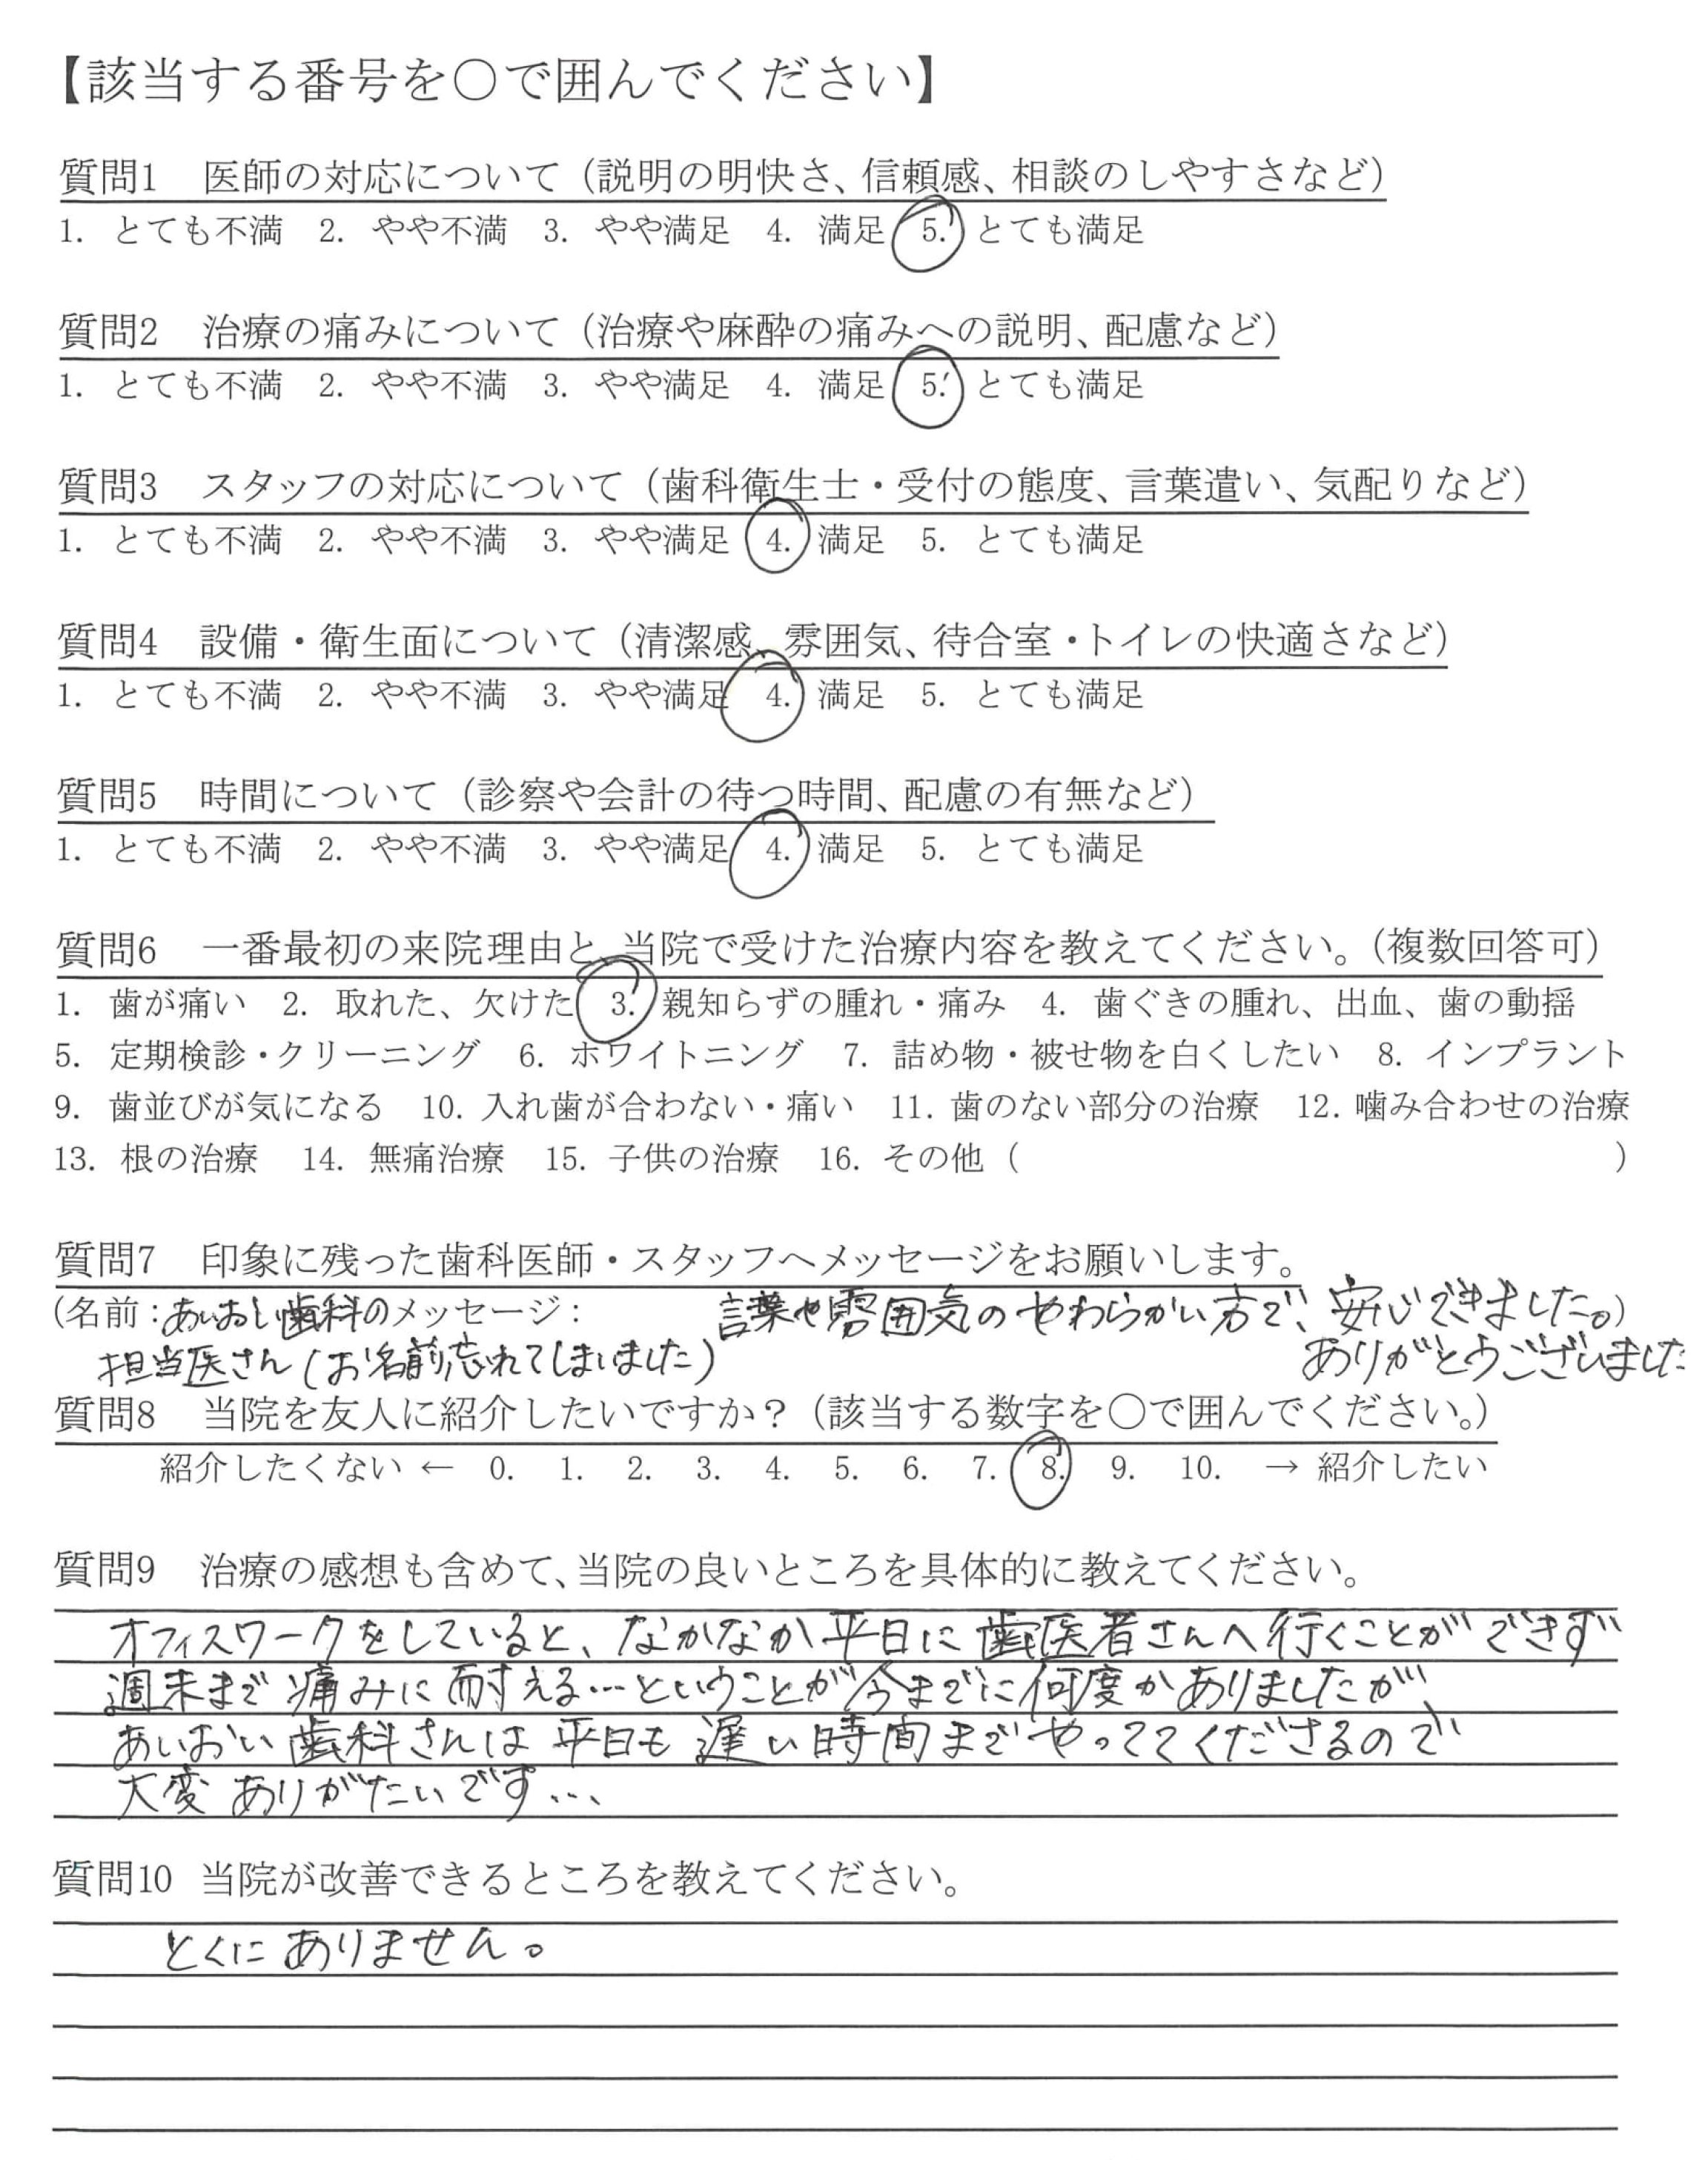 【該当する番号を〇で囲んでください】
質問1 医師の対応について（説明の明快さ、信頼感、相談のしやすさなど）
1. とても不満 2. やや不満 3. やや満足 4. 満足 5. とても満足
質問2 治療の痛みについて（治療や麻酔の痛みへの説明、配慮など）
1. とても不満 2. やや不満 3. やや満足 4. 満足 5. とても満足
質問3 スタッフの対応について（歯科衛生士・受付の態度、言葉遣い、気配りなど）
1. とても不満 2. やや不満 3. やや満足 4. 満足 5. とても満足
質問4 設備・衛生面について（清潔感、雰囲気、待合室・トイレの快適さなど）
1. とても不満 2. やや不満 3. やや満足 4. 満足 5. とても満足
質問5 時間について（診察や会計の待つ時間、配慮の有無など）
1. とても不満 2. やや不満 3. やや満足 4. 満足 5. とても満足
質問6 一番最初の来院理由と、当院で受けた治療内容を教えてください。（複数回答可）
1. 歯が痛い 2. 取れた、欠けた 3. 親知らずの腫れ・痛み 4. 歯ぐきの腫れ、出血、歯の動揺
5. 定期検診・クリーニング 6. ホワイトニング 7. 詰め物・被せ物を白くしたい 8. インプラント
9. 歯並びが気になる 10. 入れ歯が合わない・痛い 11. 歯のない部分の治療 12. 噛み合わせの治療
13. 根の治療 14. 無痛治療 15. 子供の治療 16. その他（ ）
質問7 印象に残った歯科医師・スタッフへメッセージをお願いします。
（名前：あいおい歯科の メッセージ： 言葉や雰囲気のやわらかい方で、安心できました。）
担当医さん（お名前忘れてしまいました） ありがとうございました
質問8 当院を友人に紹介したいですか？（該当する数字を〇で囲んでください。）
紹介したくない ← 0. 1. 2. 3. 4. 5. 6. 7. 8. 9. 10. → 紹介したい
質問9 治療の感想も含めて、当院の良いところを具体的に教えてください。
オフィスワークをしていると、なかなか平日に歯医者さんへ行くことができず
週末まで痛みに耐える…ということが今までに何度かありましたが、
あいおい歯科さんは平日も遅い時間までやっててくださるので
大変ありがたいです…
質問10 当院が改善できるところを教えてください。
とくにありません。